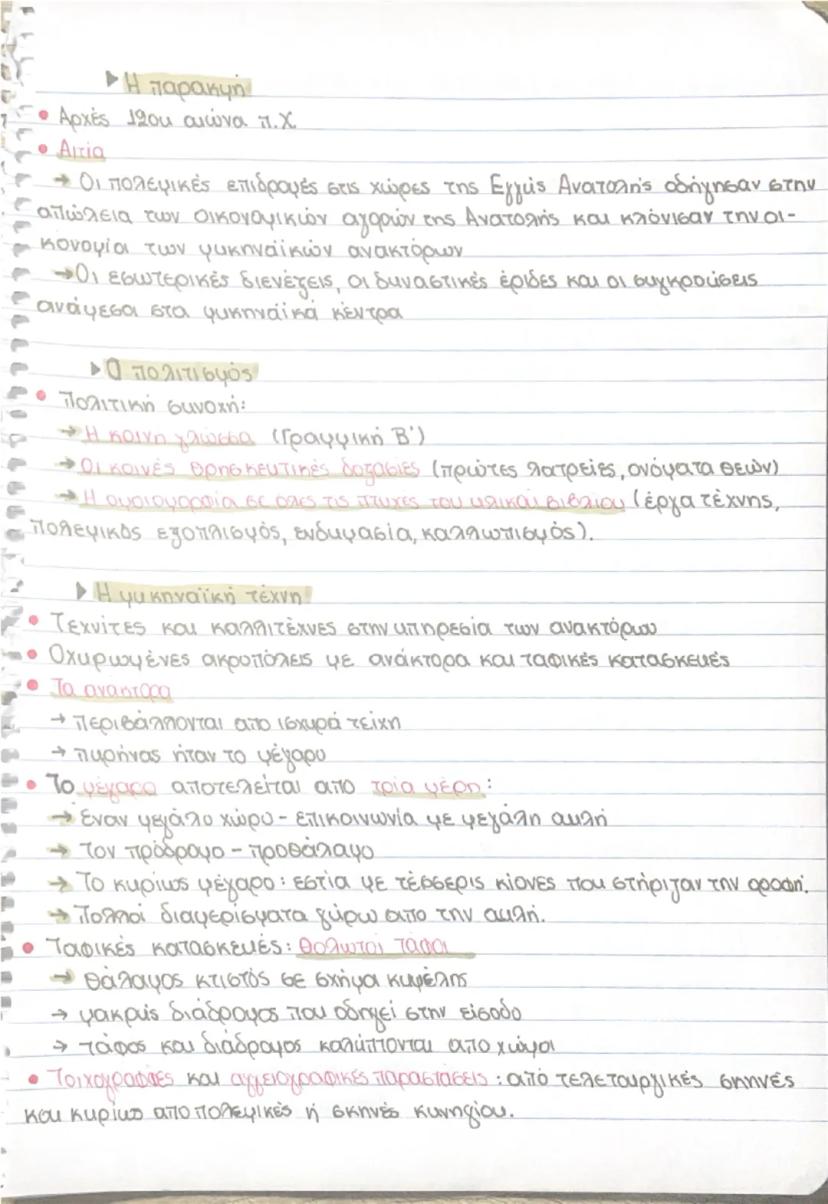 ▶ Η παρακμή
• Αρχές 12ου αιώνα π.Χ.
• Αιτία
→ Οι πολεμικές επιδρομές στις χώρες της Εγγύς Ανατολής οδήγησαν στην
απώλεια των οικονομικών αγορών της Ανατολής και κλόνισαν την οι-
κονομία των μυκηναϊκών ανακτόρων
→ Οι εσωτερικές διενέξεις, οι δυναστικές έριδες και οι συγκρούσεις
ανάμεσα στα μυκηναϊκά κέντρα
▶ Ο πολιτισμός
• Πολιτική συνοχή:
→ Η κοινή γλώσσα (Γραμμική Β')
→ Οι κοινές θρησκευτικές δοξασίες (πρώτες λατρείες, ονόματα θεών)
→ Η ομοιομορφία σε όλες τις πτυχές του υλικού βιβλίου (έργα τέχνης,
πολεμικός εξοπλισμός, ενδυμασία, καλλωπισμός).
▶ Η μυκηναϊκή τέχνη
• Τεχνίτες και καλλιτέχνες στην υπηρεσία των ανακτόρων
• Οχυρωμένες ακροπόλεις με ανάκτορα και ταφικές κατασκευές
• Τα ανάκτορα
→ περιβάλλονται από ισχυρά τείχη
→ πυρήνας ήταν το μέγαρο
• Το μέγαρο αποτελείται από τρία μέρη:
→ έναν μεγάλο χώρο - επικοινωνία με μεγάλη αυλή
→ Τον πρόδρομο - προθάλαμο
→ Το κυρίως μέγαρο: εστία με τέσσερις κίονες που στήριζαν την οροφή.
→ Πολλοί διαμερίσματα γύρω απο την αυλή.
• Ταφικές κατασκευές: Θολωτοί τάφοι
→ θάλαμος κτιστός σε σχήμα κυψέλης
→ μακρύς διάδρομος που οδηγεί στην είσοδο
→ τάφος και διάδρομος καλύπτονται απο χώμα
• Τοιχογραφίες και αγγειογραφικές παραστάσεις: από τελετουργικές σκηνές
και κυρίως από πολεμικές ή σκηνές κυνηγίου.